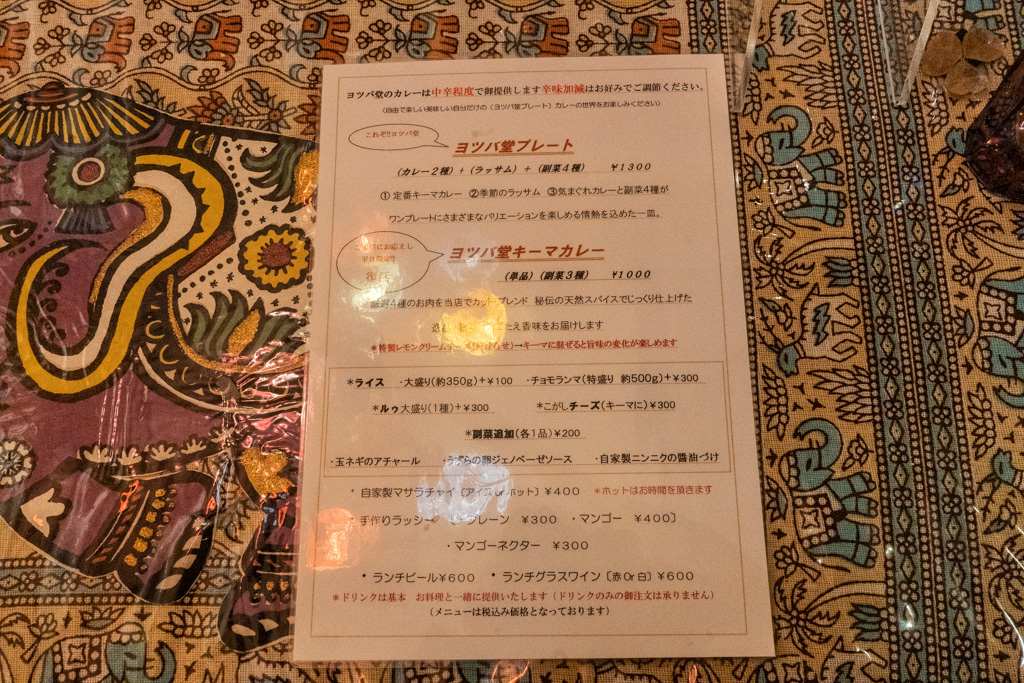 ヨツバ堂のカレーは中辛程度で御提供します辛味加減はお好みでご調節ください。
(自由で楽しい美味しい自分だけの《ヨツバ堂プレート》カレーの世界をお楽しみください)
これぞ!!ヨツバ堂
ヨツバ堂プレート
(カレー２種)＋(ラッサム)＋(副菜４種) ￥1300
① 定番キーマカレー ②季節のラッサム ③気まぐれカレーと副菜4種が
ワンプレートにさまざまなバリエーションを楽しめる情熱を込めた一皿。
にお応えし
ヨツバ堂キーマカレー
(単品)(副菜３種) ￥1000
厳選4種のお肉を当店でカット ブレンド 秘伝の天然スパイスでじっくり仕上げた
たえ香味をお届けします
＊特製レモンクリームチーズ →キーマに混ぜると旨味の変化が楽しめます
＊ライス ・大盛り(約350g)＋￥100 ・チョモランマ(特盛り 約500g)＋￥300
＊ルゥ大盛り(1種)＋￥300 ＊こがしチーズ(キーマに)￥300
＊副菜追加(各1品)￥200
・玉ネギのアチャール ・うずらの卵ジェノベーゼソース ・自家製ニンニクの醤油づけ
・自家製マサラチャイ〔アイス or ホット〕￥400 ＊ホットはお時間を頂きます
・手作りラッシー 〔プレーン ￥300 ・マンゴー ￥400〕
・マンゴーネクター ￥300
・ランチビール￥600 ・ランチグラスワイン〔赤 Or 白〕￥600
＊ドリンクは基本 お料理と一緒に提供いたします（ドリンクのみの御注文は承りません）
(メニューは税込み価格となっております)